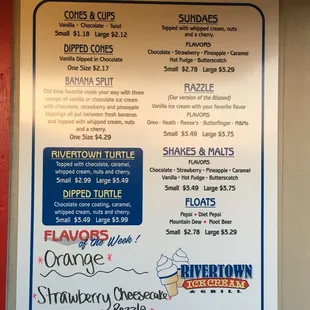 CONES & CUPS
Vanilla • Chocolate • Twist
Small $1.18 Large $2.12
DIPPED CONES
Vanilla Dipped in Chocolate
One Size $2.17
BANANA SPLIT
Old time favorite made your way with three
scoops of vanilla or chocolate ice cream
chocolate, strawberry and pineapple
toppings all put between fresh bananas
and topped with whipped cream, nuts
and cherry.
One Size $4.29
RIVERTOWN TURTLE
Topped with chocolate, caramel,
whipped cream, nuts and cherry.
Small $2.99 Large $3.49
DIPPED TURTLE
Chocolate cone coating, caramel,
whipped cream, nuts and cherry.
Small $3.49 Large $3.99
FLAVORS
of the Week!
*Orange
*Strawberry Cheesecake
Razzle
SUNDAES
Topped with whipped cream, nuts
and a cherry.
FLAVORS
Chocolate • Strawberry • Pineapple • Caramel
Hot Fudge • Butterscotch
Small $2.78 Large $3.29
RAZZLE
(Our version of the Blizzard)
Vanilla ice cream with your favorite flavor
FLAVORS
Oreo • Heath • Reese's • Butterfinger • M&Ms
Small $3.49 Large $3.75
SHAKES & MALTS
FLAVORS
Chocolate • Strawberry • Pineapple • Caramel
Vanilla • Hot Fudge • Butterscotch
Small $3.49 Large $3.75
FLOATS
Pepsi • Diet Pepsi
Mountain Dew • Root Beer
Small $2.78 Large $3.29
RIVERTOWN
ICE CREAM
& GRILL